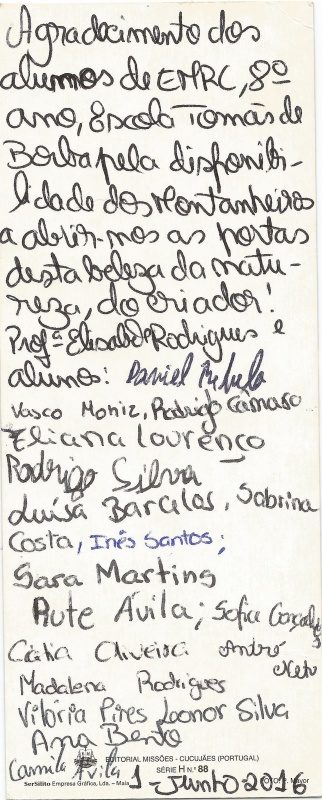 Agradecimento dos
alunos de EMRC, 8º
ano, Escola Tomás de
Borba pela disponibi-
lidade dos Montanheiros
a abrir-nos as portas
desta beleza da natu-
reza, do criador!
Profª Elisabete Rodrigues e
alunos: Daniel
Vasco Moniz, Rodrigo Câmara
Eliana Lourenço
Rodrigo Silva
Luísa Barcelos, Sabrina
Costa, Inês Santos;
Sara Martins
Rute Ávila; Sofia Gonçalves
Cátia Oliveira André
Neto
Madalena Rodrigues
Vitória Pires Leonor Silva
Ana Bento
EDITORIAL MISSÕES - CUCUJÃES (PORTUGAL)
Camila Ávila 1 - Junho 2016
SerSilito Empresa Gráfica, Lda. - Maia SÉRIE H N.º 88 FOTO: F. Mayor